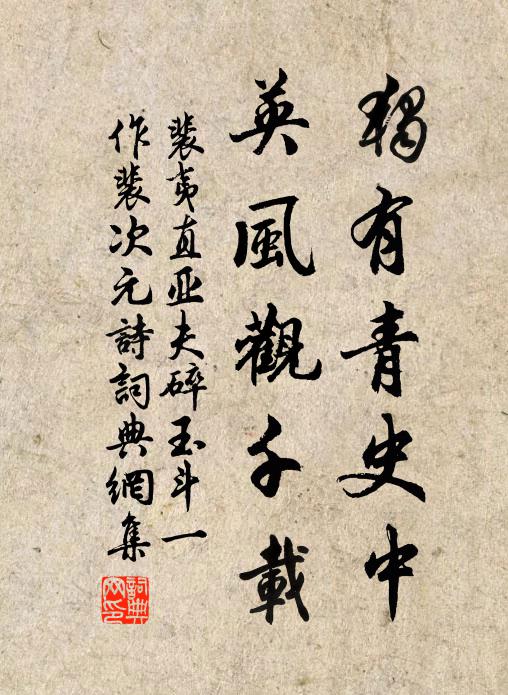 獨有青史中
英風觀千載
裴夷直亚夫碎玉斗一
作裴次元詩詞典網集
詞典